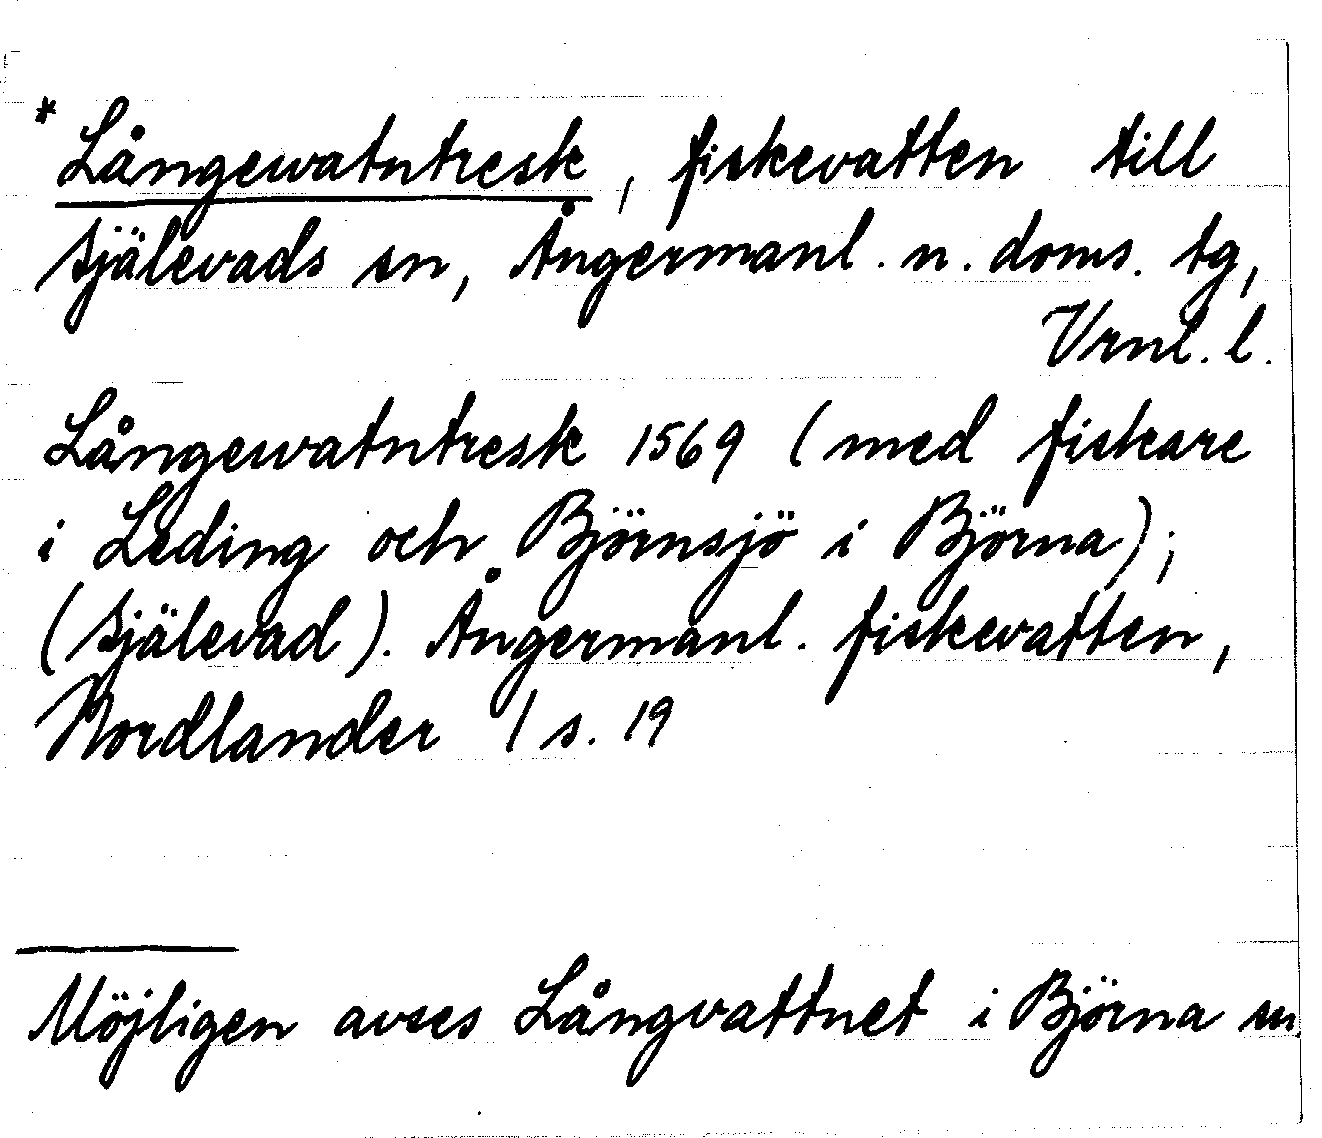 * Långewatntresk, fiskevatten till
Själevads sn, Ångermanl. n. doms. tg,
Vrnl. l.
Långewatntresk 1569 (med fiskare
i Leding och Björnsjö i Björna);
(Själevad). Ångermanl. fiskevatten,
Nordlander 1 s. 19
Möjligen avses Långvattnet i Björna sn.